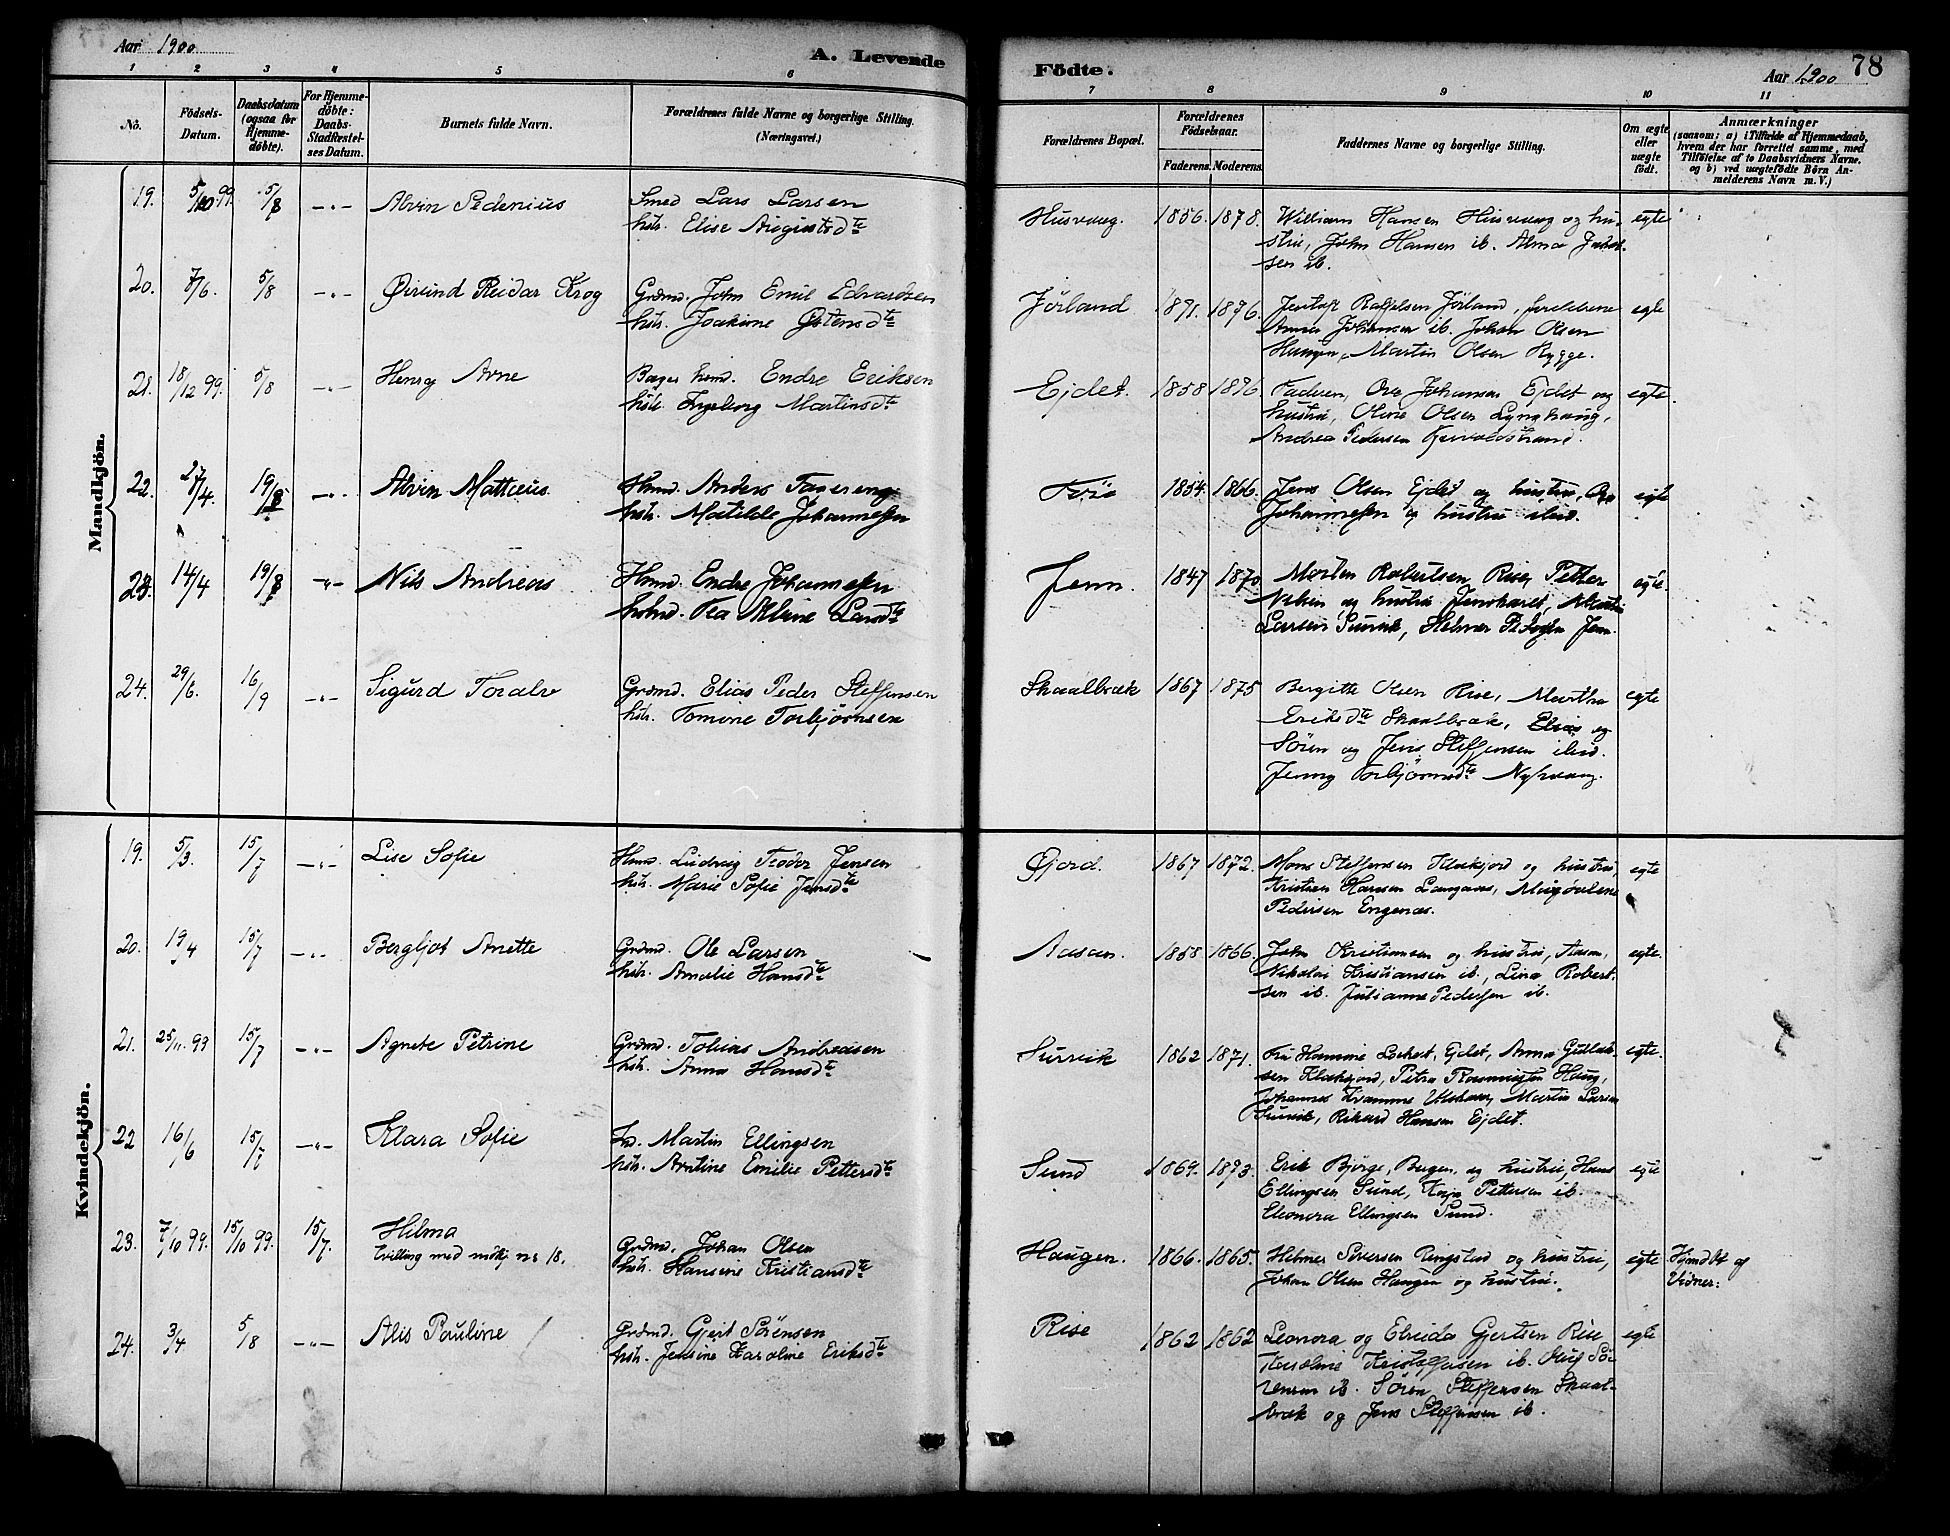 Aar 1900
A. Levende
Födte.
Aar 1900
78
1 2 3 4 5 6 7 8 9 10 11
No.
Födsels-Datum.
Daabsdatum (ogsaa for Hjemme-döbte).
For Hjemme-döbte: Daabs-Stadfæstel-ses Datum.
Barnets fulde Navn.
Forældrenes fulde Navne og borgerlige Stilling.
(Næringsvei.)
Forældrenes Bopæl.
Forældrenes Födselsaar.
Faderens. Moderens.
Faddernes Navne og borgerlige Stilling.
Om ægte eller uægte födt.
Anmærkninger
(saasom: a) i Tilfælde af Hjemmedaab,
hvem der har forrettet samme, med
Tilföielse af to Daabsvidners Navne.
og b) ved uægtefödte Börn An-
melderens Navn m. V.)
Mandkjön.
19. 5/10 99. 5/8 -"- Alvin Pedenius
Smed Lars Larsen
hstr. Elise Augustsdte
Husvaag. 1856. 1878.
William Hansen Husvaag og hu-
strue, John Hansen ib. Alma Jakob-
sen ib.
egte
20. 7/6. 5/8 -"- Øivind Reidar Krog
Grdmd. John Emil Edvardsen
hstr. Joakime Østensdte
Jörland 1871. 1876.
Raffelsen Jörland, forældrene
Anna Johansen ib. Johan Olsen
Haugen, Martin Olsen Rygge.
egte
21. 18/12 99. 5/8 -"- Henry Arne
Endre Eriksen
hstr. Ingeborg Martinsdte
Ejdet. 1858 1876.
Faderen, Ove Johansen Ejdet og
hustru, Oline Olsen Lynghaug,
Andrea Pedersen
egte
22. 27/4. 19/8 -"- Alvin Mattæus
Hmd. Anders
hstr. Matilde Johannessen
1854. 1866.
Jens Olsen Ejdet og hustru,
Johannessen og hustru ibid.
egte
23. 14/4 19/8 -"- Nils Andreas
Hmd. Endre Johannessen
Tea Albine Larsdte
Jenn. 1847 1870
Morten Robertsen Rise, Petter
og hustru
Larsen Survik, Helmer Jenn.
egte.
24. 29/6. 16/9 -"- Sigurd Toralv
Grdmd. Elias Peder Steffensen
hstr. Tomine Torbjörnsen
Skaalbræk 1867 1875
Bergitte Olsen Rise, Martha
Eriksdte Skaalbræk, Elias og
Sören og Jens Steffensen ibid.
Jenny Torbjörnsdte
egte
Kvindekjön.
19. 5/3. 15/7 -"- Lise Sofie
Hmd. Ludvig Teodor Jensen
hstr. Marie Sofie Jensdte
Øjord. 1867 1872.
Mons Steffensen Klakjord og hustru,
Kristian Hansen Langaas, Magdalene
Pedersen Engenæs.
egte
20. 19/4 15/7 -"- Bergljot Anette
Grdmd. Ole Larsen
hstr. Amalie Hansdte
Aasan. 1858 1866.
John Kristiansen og hustru, Aasan,
Nikolai Kristiansen ib., Lina Robert-
sen ib. Julianne Pedersen ib.
egte.
21. 25/11. 99 15/7 -"- Agnete Petrine
Grdmd. Tobias Andreasen
hstr. Anna Hansdte
Survik 1862 1871.
Fru Hamine Lockert, Ejdet, Anna Gullak-
sen Klaksjord, Petra Rasmussen Haug,
Johannes Kramme Martin Larsen
Survik, Rikard Hansen Ejdet.
egte.
22 16/6 15/7 -"- Klara Sofie
Martin Ellingsen
hstr. Arntine Emilie Pettersdte
Sund 1869. 1873.
Erik Bjørge, Bugen, og hustru, Hans
Ellingsen Sund, Kaja Pettersen ib.
Eleonora Ellingsen Sund.
egte
23. 7/10 99. 15/10 99. 15/7. Hilma
tvilling med mdkj no 18.
Grdmd. Johan Olsen
hstr. Hansine Kristiansdte
Haugen. 1866. 1865.
Helmer Siversen Ringstad og hustru,
Johan Olsen Haugen og hustru.
egte
Hjmdbt af
Vidner:
24. 3/4 5/8 -"- Alis Pauline
Grdmd. Gjert Sörensen
hstr. Jensine Karoline Eriksdte
Rise 1862 1862
Leonora og Elvida Gjertsen Rise
Karoline Kristoffersen ib. Oluf Sö-
rensen ib. Sören Steffensen Skaal-
bræk og Jens Steffensen ib.
egte